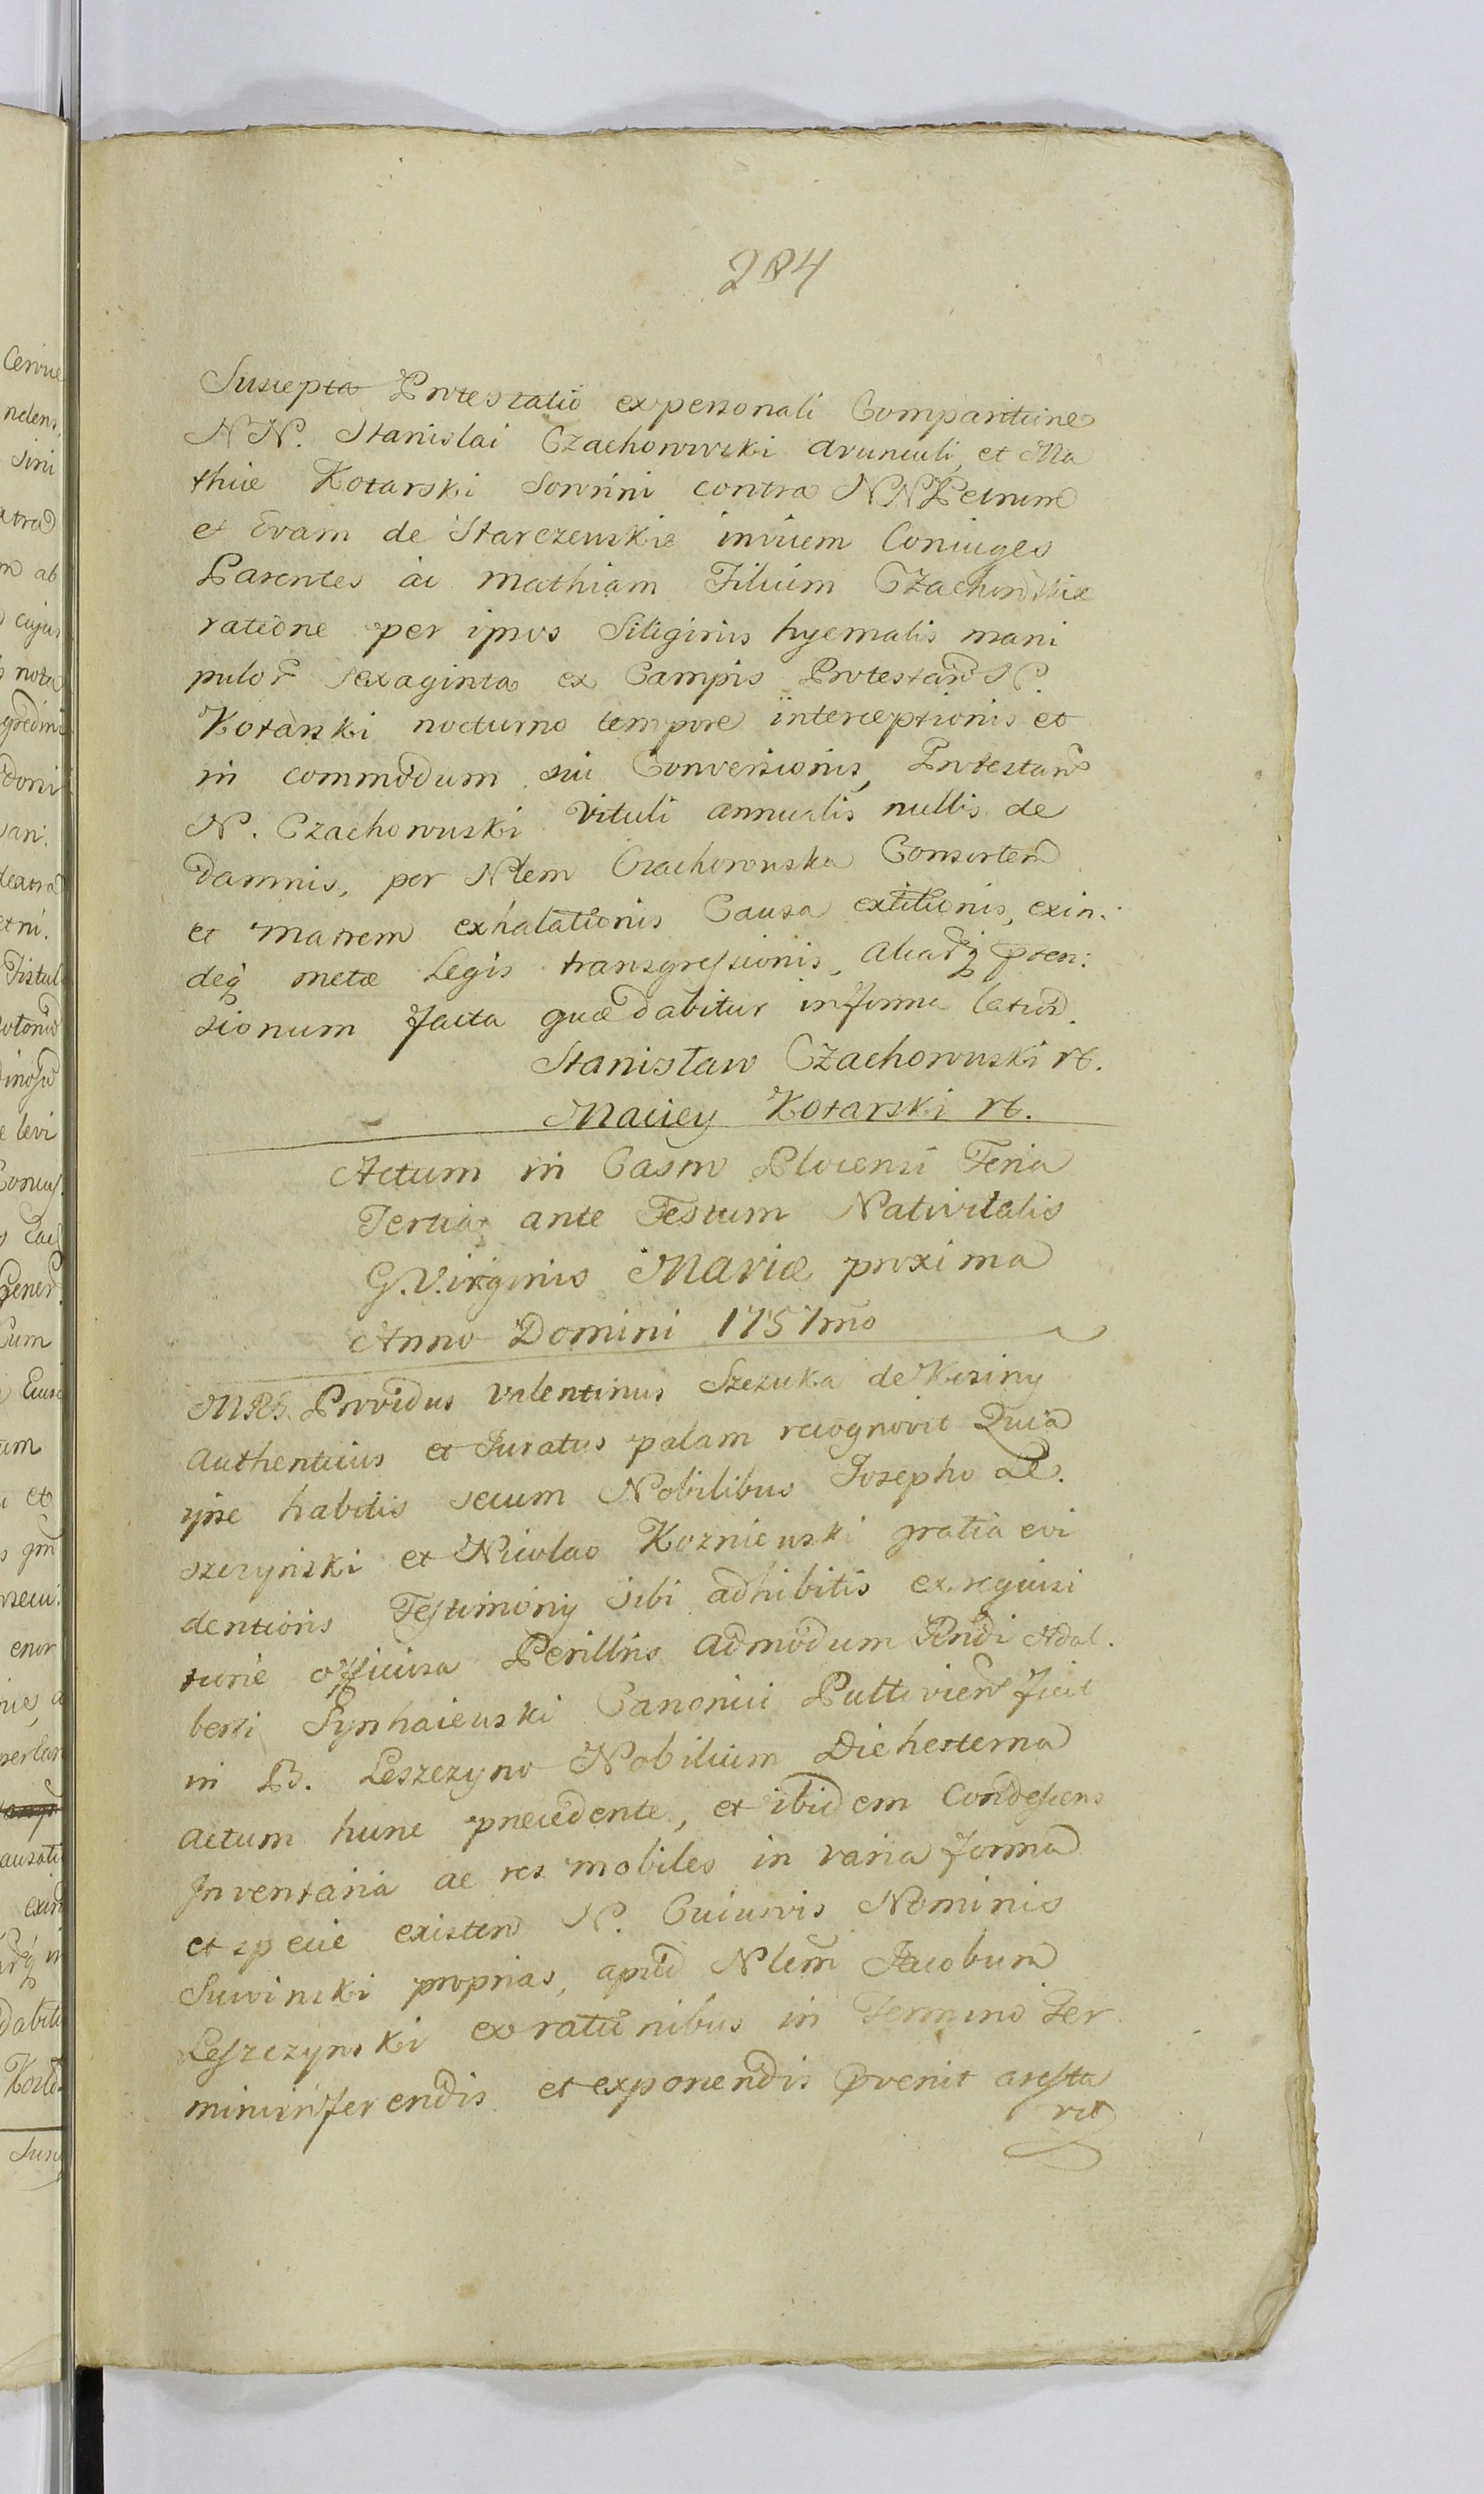 284
Suscepta Protestatio ex personali Comparitione
NN. Stanislai Czachorowski avunculi, et Ma
thiæ Kotarski Sororini contra NN Petrum
et Evam de Starczewskie invicem Coniuges
Parentes ac Mathiam Filium Czachorowskie
ratione per ipsos Siliginis hyemalis mani
pulor sexaginta ex Campis Protestan N.
Kotarski nocturno tempore interceptionis et
in commodum sui Conversionis, Protestan
N. Czachorowski Vituli annualis nullis de
damnis, per Nlem Czachorowska Consortem
et matrem exhalationis Causa extitionis, exin
deq metæ Legis transgressionis, aliarq prten:
sionum facta quæ dabitur in forma latiori.
Stanisław Czachorowski rt.
Maciey Kotarski rt.
Actum in Castro Plocensi Feria
Tertia ante Festum Nativitatis
G. Virginis Mariæ proxima
Anno Domini 1757mo
MRS. Providus Valentinus Szczuka de Kesiny
Authenticus et Juratus palam recognovit Quia
ipse habitis secum Nobilibus Josepho Le.
szczyński et Nicolao Kozniewski gratia evi
dentioris Testimonij sibi adhibitis ex requisi
tione officiosa Perillris admodum Rndi Adal.
berti Canonici Pultovien ficit
in B. Leszczyno Nobilium Die hesterna
actum hunc præcedente, et ibidem Condescens
Inventaria ac res mobiles in varia forma
et specie existen N. Cuiusvis Nominis
Suwinski proprias, apud Nlem Jacobum
Leszczynski ex rationibus in Termino Ter
mini inferendis et exponendis pvenit aresta
vit